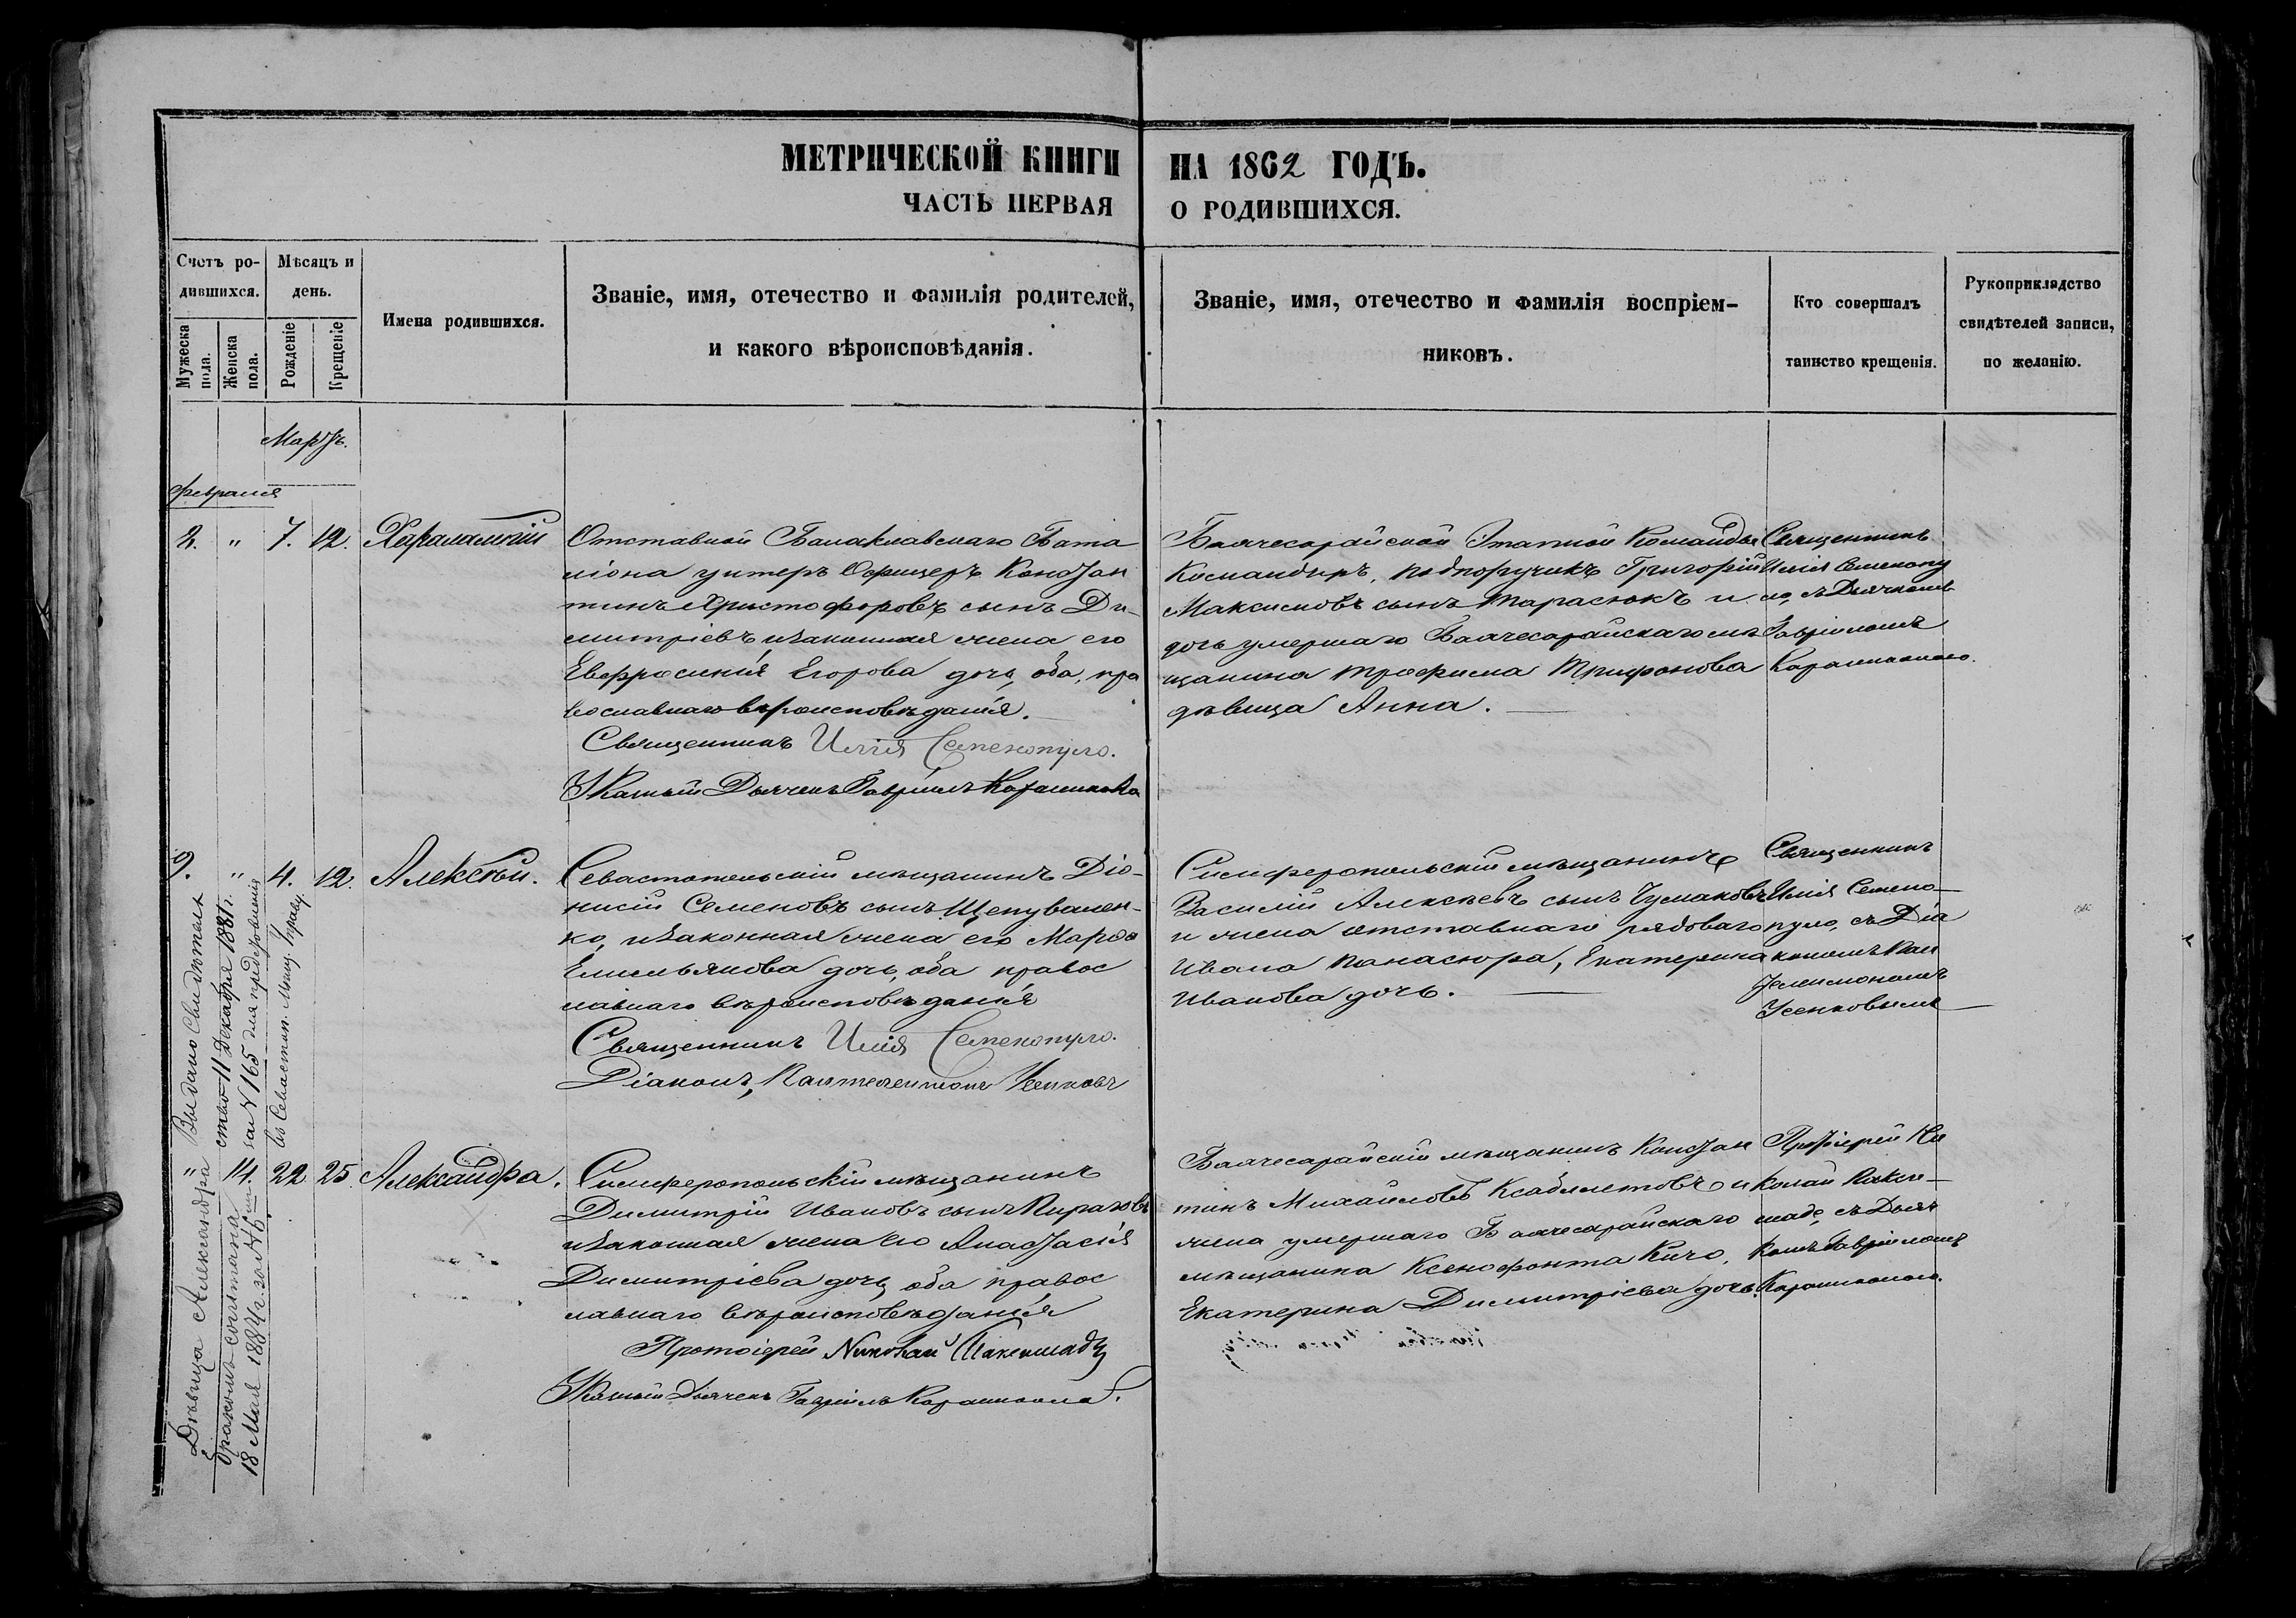 МЕТРИЧЕСКОЙ КНИГИ НА 1862 ГОДЪ.
ЧАСТЬ ПЕРВАЯ О РОДИВШИХСЯ.
Счетъ ро-
дившихся.
Мужеска
пола.
Женска
пола.
Мѣсяцъ и
день.
Рожденіе
Крещеніе
Имена родившихся.
Званіе, имя, отечество и фамилія родителей,
и какого вѣроисповѣданія.
Званіе, имя, отечество и фамилія воспріем-
никовъ.
Кто совершалъ
таинство крещенія.
Рукоприкладство
свидѣтелей записи,
по желанію.
Мартъ.
Февраля
2. " 7. 12. Харалампій
Отставной Балаклавскаго Бата
ліона унтеръ Офицеръ Констан
тинъ Христофоровъ сынъ Ди-
митріевъ и законная жена его
Евфросинія Егорова дочь, оба, пра
вославнаго вѣроисповѣданія.
Священникъ Илія Семенопуло.
Дьячекъ Гавріилъ
Бахчесарайской Этапной Команды
Командиръ, подпоручикъ Григорій
Максимовъ сынъ Тарасюкъ и
дочь умершаго Бахчесарайскаго мѣ
щанина Трофима Трифонова
дѣвица Анна.
Священникъ
Илія Семенопу
ло, съ Дьячкомъ
Гавріиломъ
9. " 4. 12. Алексѣй.
Севастопольскій мѣщанинъ Діо-
нисій Семеновъ сынъ Щепувален-
ко, и законная жена его Марѳа
Емельянова дочь, оба правос
лавнаго вѣроисповѣданія
Священникъ Илія Семенопуло.
Діаконъ, Пантелеимонъ Усенковъ
Симферопольскій мѣщанинъ
Василій Алексѣевъ сынъ Чумаковъ
и жена отставнаго рядоваго
Ивана Панасюра, Екатерина
Иванова дочь.
Священникъ
Илія Семено-
пуло, съ Діа
кономъ Пан
телеимономъ
Усенковымъ
Выдано Свидѣтель
ство 11 Декабря 1881 г.
за № 165 для представленія
въ Севастоп. Мѣщ. Управу.
" 14. 22 25 Александра.
Симферопольскій мѣщанинъ
Димитрій Ивановъ сынъ Пираговъ
и законная жена его Анастасія
Димитріева дочь, оба правос
лавнаго вѣроисповѣданія
Протоіерей Николай Паксимадъ
Дьячекъ Гавріилъ
Бахчесарайскій мѣщанинъ Констан
тинъ Михайловъ Ксабяметовъ и
жена умершаго Бахчесарайскаго
мѣщанина Ксенофонта Кичо,
Екатерина Димитріева дочь.
Протіерей Ни
колай Пакси-
маде, съ Дьяч
комъ Гавріиломъ
Дѣвица Александра
бракомъ сочетана
18 Мая 1884 г. за №